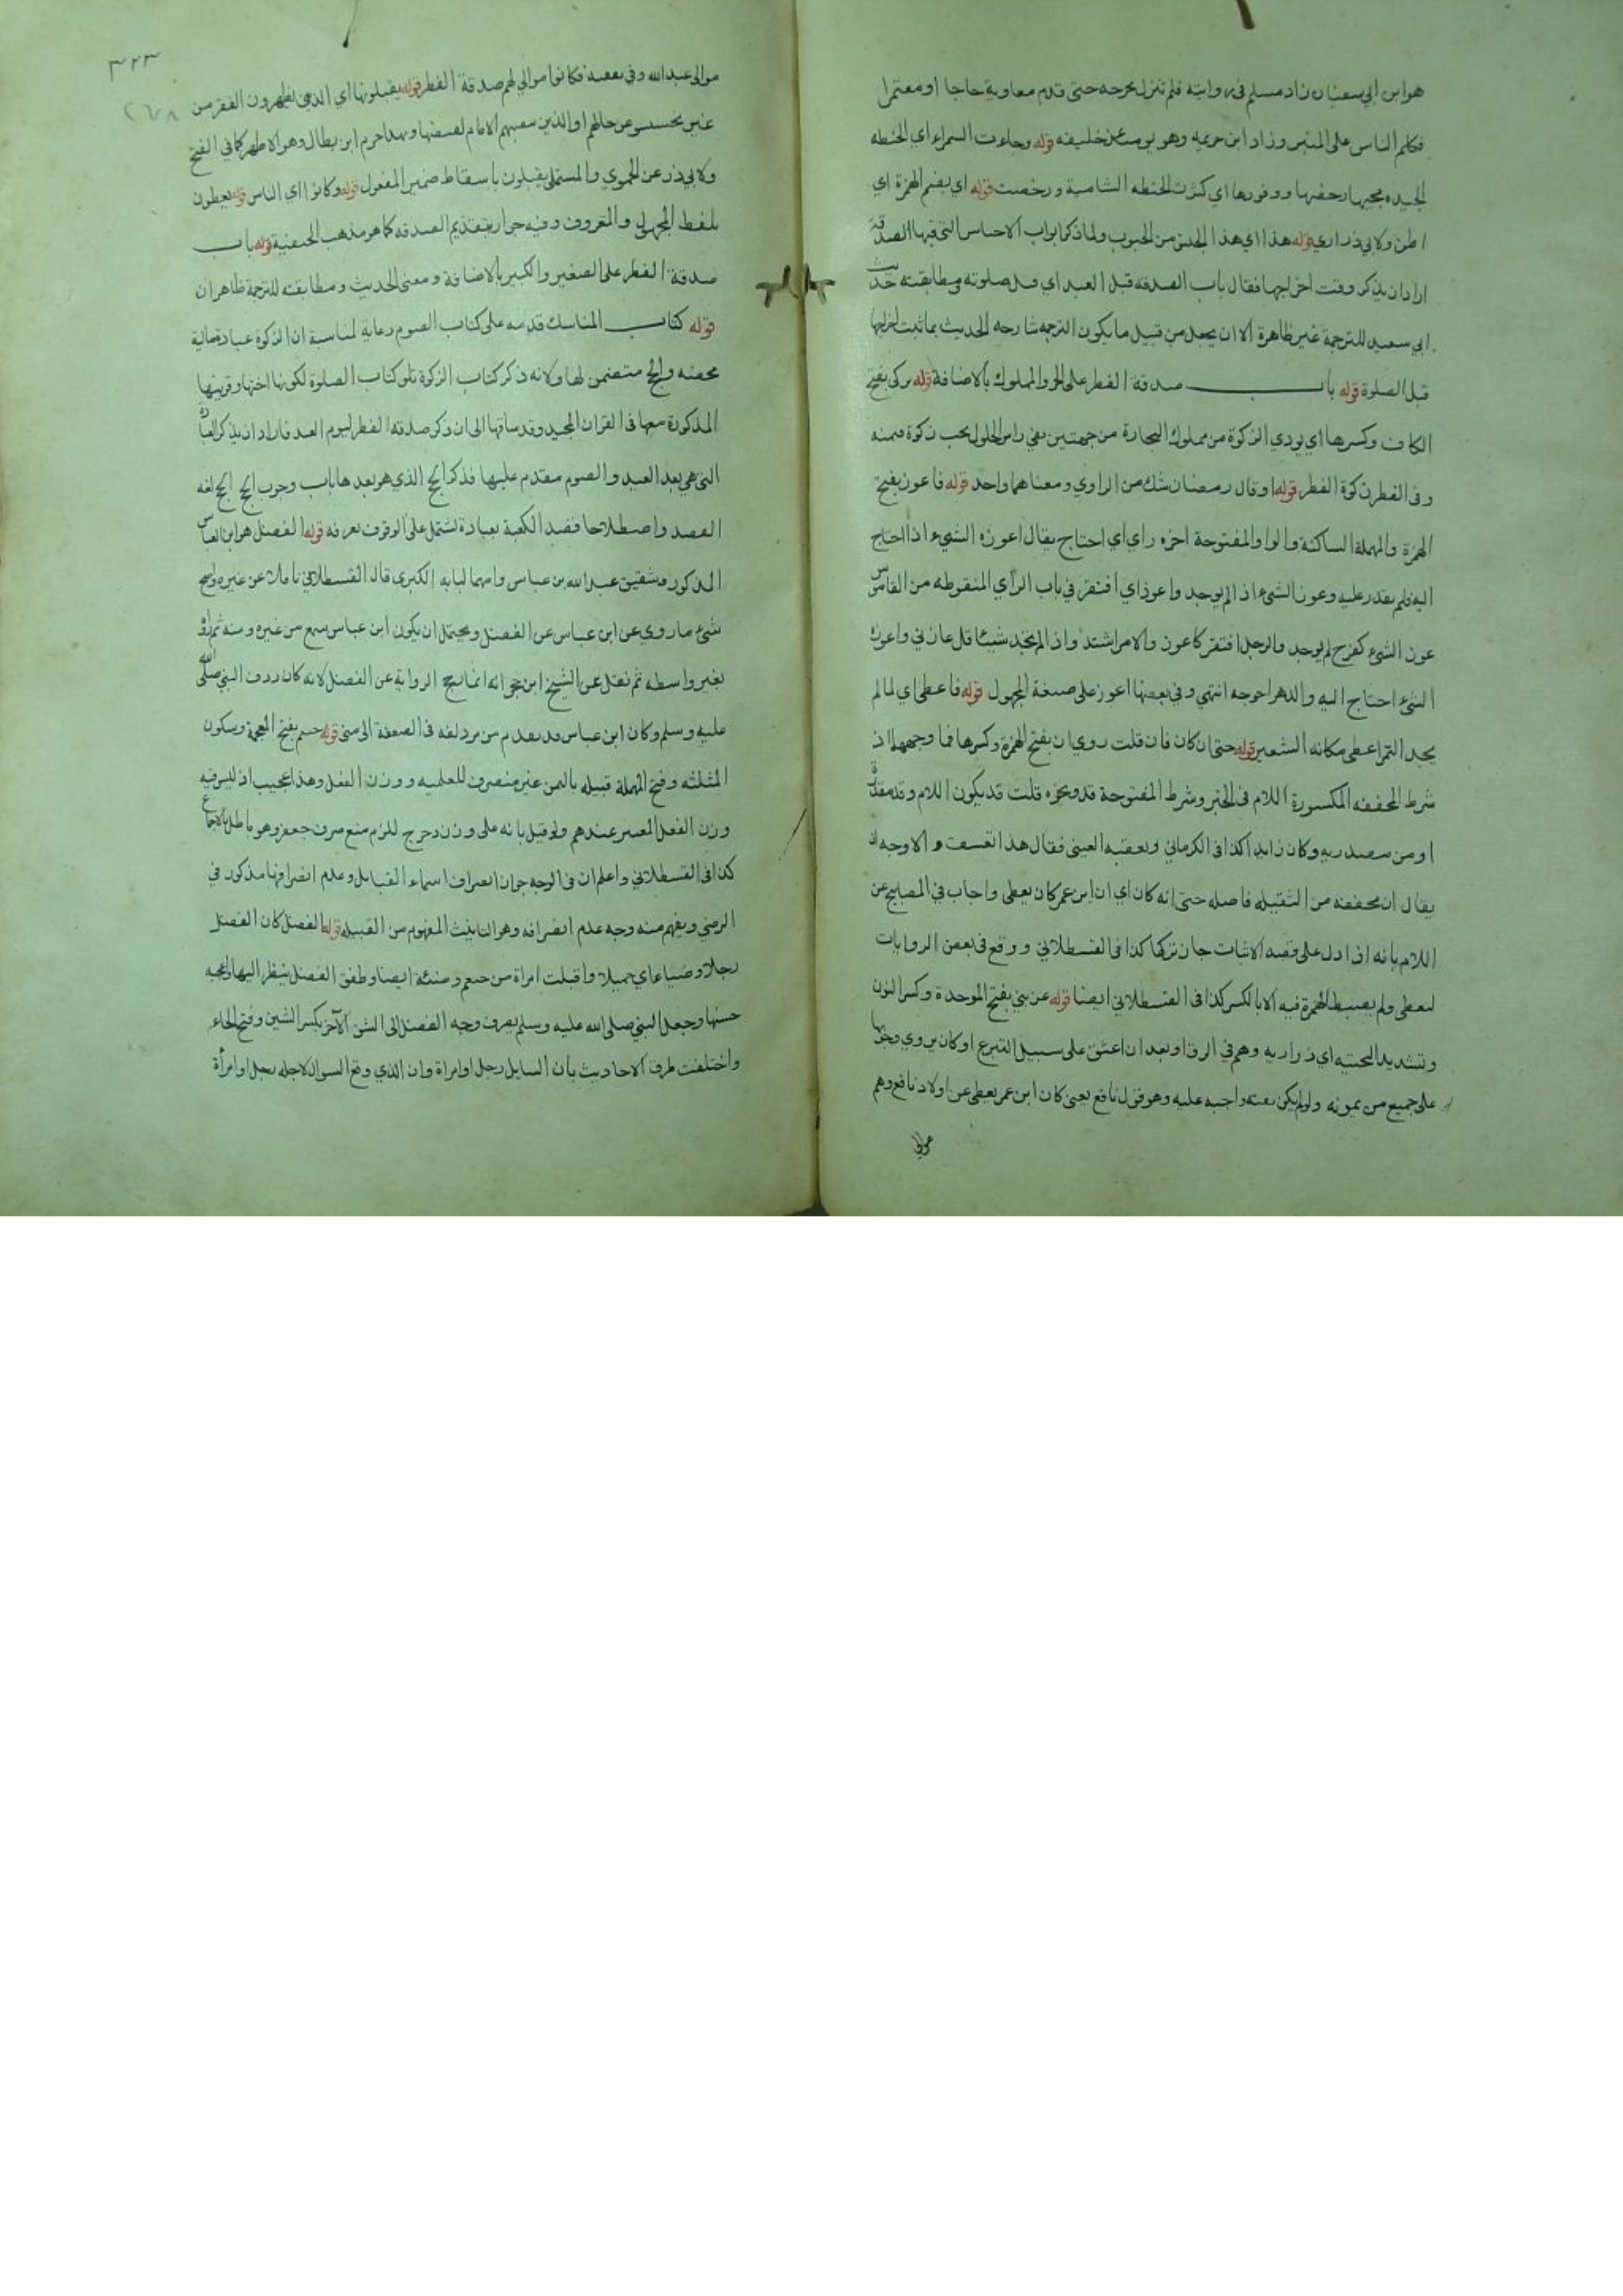 هو ابن ابي سعيان زاد مسلم في روايته فلم تنزل نخرجه حتى قدم معاوية حاجا او معتمرا
فكلم الناس على المنبر وزاد ابن خزيمه وهو يومئذ خليفه قوله وجاءت السمراء اي الحنطه
الجيده بمجيها رخصها ووفورها اي كثرت الحنطه الشامية ورخصت قوله اي بضم الهمزة اي
اظن ولابي ذر اري قوله هذا اي هذا الجنس من الحبوب ولما ذكر ابواب الاجناس التي فيها الصدقة
اراد ان يذكر وقت اخراجها فقال باب الصدقه قبل العيد اي قبل صلوته ومطابقته حديث
ابي سعيد للترجمة غير ظاهرة الا ان يجعل من قبيل ما يكون الترجمه شارحه الحديث بما ثبت اخراجها
قبل الصلوة قوله باب صدقة الفطر على الحر والمملوك بالاضافة قوله يزكى بفتح
الكاف وكسرها اي يودي الزكوة من مملوك التجارة من جهتين ففي راس الحلول يجب زكوة قيمته
وفي الفطر زكوة الفطر قوله او قال رمضان شك من الراوي ومعناهما واحد قوله فاعوز بفتح
الهمزة والمهملة الساكنة والواو المفتوحة اخره راي اي احتاج يقال اعوزه الشيء اذا احتاج
اليه فلم يقدر عليه وعوز الشيء اذا لم يوجد واعوز اي افتقر في باب الراي المنقوطه من القاموس
عوز الشيء كفرح لم يوجد والرجل افتقر كاعوز والامر اشتد واذا لم تجد شيئا قل عازني واعوزه
الشيء احتاج اليه والدهر احوجه انتهي وفي بعضها اعوز على صيغة المجهول قوله فاعطى اي لما لم
يجد التمر اعطى مكانه الشعير قوله حتى ان كان فان قلت روي ان بفتح الهمزة وكسرها فما وجههما اذ
شرط المخففه المكسورة اللام في الخبر وشرط المفتوحة قد ونحوه قلت قد يكون اللام وقد مقدرة
او من مصدريه وكان زايد كذا في الكرماني وتعقبه العيني فقال هذا تعسف والاوجه ان
يقال ان مخففه من الثقيله فاصله حتى انه كان اي ان ابن عمر كان يعطى واجاب في المصابيح عن
اللام بانه اذا دل على قصد الاثبات جاز تركها كذا في القسطلاني ووقع في بعض الروايات
ليعطى ولم يضبط الهمزة فيه الا بالكسر كذا في القسطلاني ايضا قوله عن بني بفتح الموحدة وكسر النون
وتشديد التحتيه اي ذراريه وهم في الرق او بعد ان اعتق على سبيل التبرع او كان يروي وجوبها
على جميع من يمونه ولو لم يكن نفقته واجبه عليه وهو قول نافع يعني كان ابن عمر يعطى عن اولاد نافع وهم
موالي
٣٢٣
٢٦٨
موالي عبد الله وفي نفقته فكانوا موالي لهم صدقة الفطر قوله يقبلونها اي الذين يظهرون الفقر من
غير تجسس عن حالهم او الذين نصبهم الامام لقبضها وبهذا جزم ابن بطال وهو الاظهر كما في الفتح
ولابي ذر عن الحموي والمستملي يقبلون باسقاط ضمير المفعول قوله وكانوا اي الناس قوله يعطون
بلفظ المجهول والمعروف وفيه جواز تقديم الصدقه كما هو مذهب الحنفية قوله باب
صدقة الفطر على الصغير والكبير بالاضافة ومعنى الحديث ومطابقته للترجمة ظاهران
قوله كتاب المناسك قدمه على كتاب الصوم رعاية لمناسبة ان الزكوة عبادة مالية
محضه والحج متضمن لها ولانه ذكر كتاب الزكوة تلو كتاب الصلوة لكونها اختها وقرينتها
المذكورة معها في القران المجيد وقد ساقها الى ان ذكر صدقه الفطر ليوم العيد فاراد ان يذكر العبادة
التي هي بعد العيد والصوم مقدم عليها فذكر الحج الذي هو بعدها باب وجوب الحج الحج لغه
القصد واصطلاحا قصد الكعبة بعبادة تشتمل على الوقوف بعرفه قوله الفضل هو ابن العباس
المذكور وشقيق عبد الله بن عباس وامهما لبابه الكبرى قال القسطلاني ناقلا عن غيره واصح
شيء ما روي عن ابن عباس عن الفضل ويحتمل ان يكون ابن عباس سمع من غيره ومنه ثم رواه
بغير واسطه ثم نقل عن الشيخ ابن حجر انه انما رجح الرواية عن الفضل لانه كان ردف النبي صلى الله
عليه وسلم وكان ابن عباس قد تقدم من مزدلفه في الضعفة الى منى قوله خثعم بفتح المعجمة وسكون
المثلثه وفتح المهملة قبيله باليمن غير منصرف للعلميه ووزن الفعل وهذا عجيب اذ ليس فيه
وزن الفعل المعتبر عندهم ولو قيل بانه على وزن دحرج للزم منع صرف جعفر وهو باطل بالاجماع
كذا في القسطلاني واعلم ان في الوجه جواز انصراف اسماء القبايل وعدم انصرافها مذكور في
الرضي ويفهم منه وجه عدم انصرافه وهو التانيث المفهوم من القبيله قوله الفضل كان الفضل
رجلا وضيا اي جميلا واقبلت امراة من خثعم وضئة ايضا وطفق الفضل ينظر اليها واعجبه
حسنها وجعل النبي صلى الله عليه وسلم يصرف وجه الفضل الى الشق الآخر بكسر الشين وفتح الخاء
واختلفت طرق الاحاديث بان السايل رجل او امراة وان الذي وقع السوال لاجله رجل او امرأة